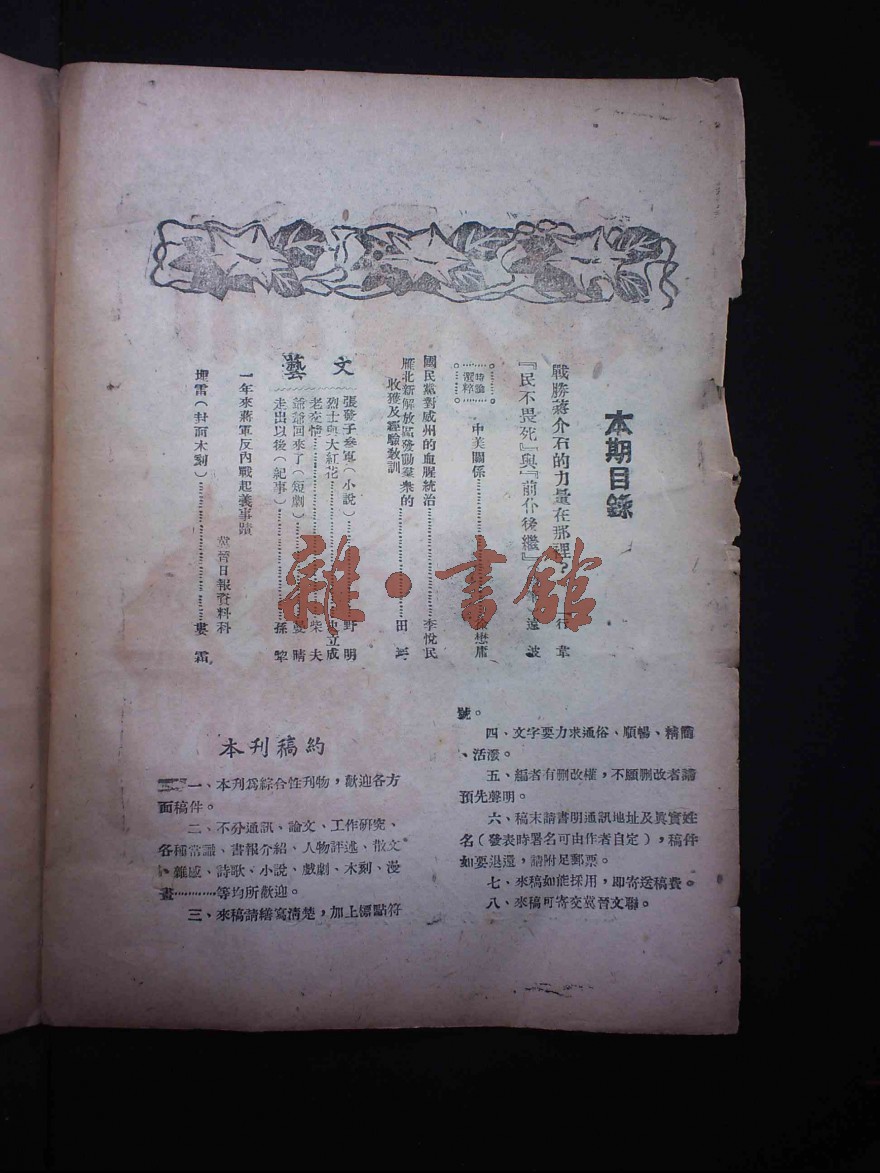 本期目錄
戰勝蔣介石的力量在那裡？ 行 韋
『民不畏死』與『前仆後繼』 遠 波
時論選粹
中美關係 懋庸
國民黨對威州的血腥統治 李悅民
雁北新解放區發動羣衆的
收獲及經驗教訓 田
文藝
張發子參軍（小說） 野 明
烈士與大紅花 立成
老 情 柴 夫
爺爺回來了（短劇） 曼 晴
走出以後（紀事） 孫 犂
一年來蔣軍反內戰起義事蹟
冀晉日報資料科
埋雷（封面木刻） 婁 霜
雜·書館
本刊稿約
一、本刊爲綜合性刊物，歡迎各方
面稿件。
二、不分通訊、論文、工作研究、
各種常識、書報介紹、人物評述、散文
、雜感、詩歌、小說、戲劇、木刻、漫
畫…………等均所歡迎。
三、來稿請繕寫清楚，加上標點符
號。
四、文字要力求通俗、順暢、精簡
、活潑。
五、編者有刪改權，不願刪改者請
預先聲明。
六、稿末請書明通訊地址及眞實姓
名（發表時署名可由作者自定），稿件
如要退還，請附足郵票。
七、來稿如能採用，即寄送稿費。
八、來稿可寄交冀晉文聯。